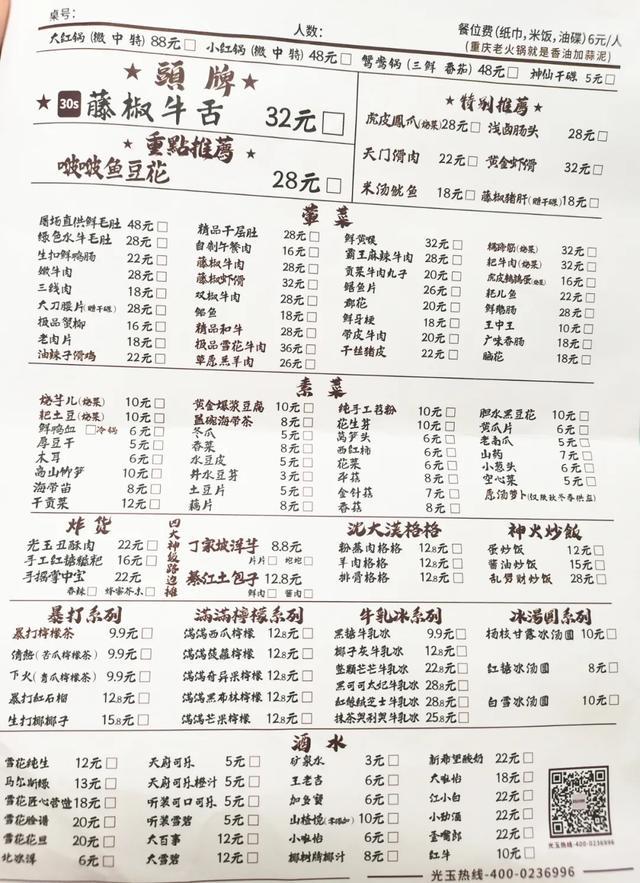 桌号:
人数:
餐位费(纸巾,米饭,油碟)6元/人
(重庆老火锅就是香油加蒜泥)
大红锅(微 中 特)88元 小红锅(微 中 特)48元 鸳鸯锅(三鲜 番茄)48元 神仙干碟 5元
頭牌
30s 藤椒牛舌 32元
重點推薦
啵啵鱼豆花 28元
特別推薦
虎皮鳳爪(烧菜)28元 浅卤肠头 28元
天门滑肉 22元 黄金虾滑 32元
米汤鱿鱼 18元 藤椒猪肝(赠干碟)18元
葷菜
屠场直供鲜毛肚 48元 精品千层肚 28元 鲜黄喉 32元 32元
绿色水牛毛肚 28元 自制午餐肉 16元 霸王麻辣牛肉 28元 耙牛肉(烧菜) 32元
生扣鲜鸭肠 22元 藤椒牛肉 28元 贡菜牛肉丸子 20元 虎皮鹌鹑蛋(烧菜) 16元
嫩牛肉 28元 藤椒虾滑 32元 鳝鱼片 26元 耙儿鱼 22元
三线肉 18元 双椒牛肉 28元 郡花 20元 鲜鹅肠 28元
大刀腰片(赠干碟) 28元 18元 鲜牙梗 18元 王中王 10元
极品蟹柳 16元 精品和牛 28元 带皮牛肉 20元 广味香肠 18元
老肉片 18元 极品雪花牛肉 36元 干拌猪皮 22元 脑花 18元
油辣子滑鸡 22元 草原羔羊肉 26元
素菜
烧芋儿(烧菜) 10元 黄金爆浆豆腐 10元 纯手工苕粉 10元 胆水黑豆花 10元
耙土豆(烧菜) 10元 盖碗海带茶 8元 花生芽 10元 黄瓜片 6元
鲜鸭血 冷锅 6元 冬瓜 5元 莴笋头 6元 老南瓜 5元
厚豆干 5元 香菜 8元 西红柿 6元 山药 7元
木耳 6元 水豆皮 5元 花菜 6元 小葱头 6元
高山竹笋 10元 井水豆芽 3元 6元 空心菜 5元
海带苗 8元 土豆片 5元 金针菇 7元 愿汤萝卜
干贡菜 12元 藕片 8元 香菇 8元
炸货
光玉丑酥肉 22元
手工红糖糍粑 16元
手撕掌中宝 22元
香辣 蜂蜜芥末
四大神级路边摊
丁家坡洋芋 8.8元
片片 坨坨
綦江土包子 12.8元
鲜肉 酱肉
沈大漢格格
粉蒸肉格格 12.8元
羊肉格格 12.8元
排骨格格 12.8元
神火炒飯
蛋炒饭 12元
酱油炒饭 15元
乱劈财炒饭 28元
暴打系列
暴打柠檬茶 9.9元
倩熱(苦瓜柠檬茶) 9.9元
下火(青瓜柠檬茶) 9.9元
暴打红石榴 12.8元
生打椰椰子 15.8元
滿滿檸檬系列
满满西瓜柠檬 12.8元
满满菠蘿柠檬 12.8元
满满奇异果柠檬 12.8元
满满黑布林柠檬 12.8元
满满芒果柠檬 12.8元
牛乳冰系列
黑糖牛乳冰 9.9元
椰子灰牛乳冰 12.8元
整颗芒芒牛乳冰 22.8元
黑可可太妃牛乳冰 28.8元
红丝绒芝士牛乳冰 28.8元
抹茶哭别哭牛乳冰 25.8元
冰湯圓系列
杨枝甘露冰汤圆 10元
红糖冰汤圆 8元
白雪冰汤圆 10元
酒水
雪花纯生 12元 天府可乐 5元 矿泉水 3元 新希望酸奶 22元
马尔斯绿 13元 天府可乐橙汁 5元 王老吉 6元 大唯怡 18元
雪花匠心营造 18元 听装可口可乐 5元 加多宝 6元 江小白 22元
雪花脸谱 20元 听装雪碧 5元 山楂悦(零添加) 10元 小劲酒 22元
雪花花旦 20元 大百事 12元 小唯怡 6元 歪嘴郎 22元
北冰洋 6元 大雪碧 12元 椰树牌椰汁 8元 红牛 10元
光玉热线-400-0236996
光玉热线-400-0236996